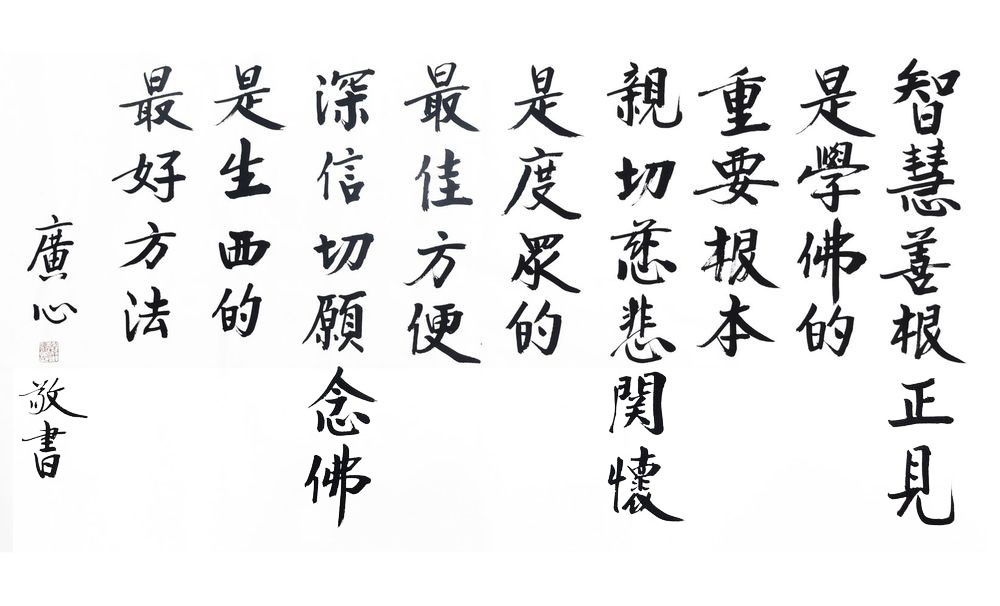 智慧善根正見
是學佛的
重要根本
親切慈悲関懷
是度眾的
最佳方便
深信切願念佛
是生西的
最好方法
廣心
敬書